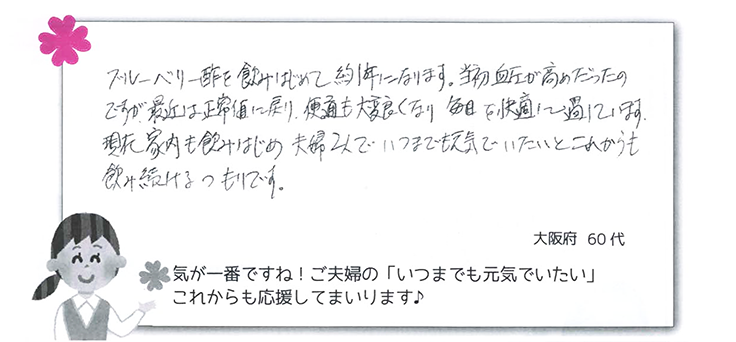 ブルーベリー酢を飲みはじめて約1年になります。当初血圧が高めだったの
ですが最近は正常値に戻り、便通も大変良くなり毎日を快適に過しています。
現在家内も飲みはじめ夫婦2人でいつまでも元気でいたいとこれからも
飲み続けるつもりです。
大阪府 60代
気が一番ですね！ご夫婦の「いつまでも元気でいたい」
これからも応援してまいります♪